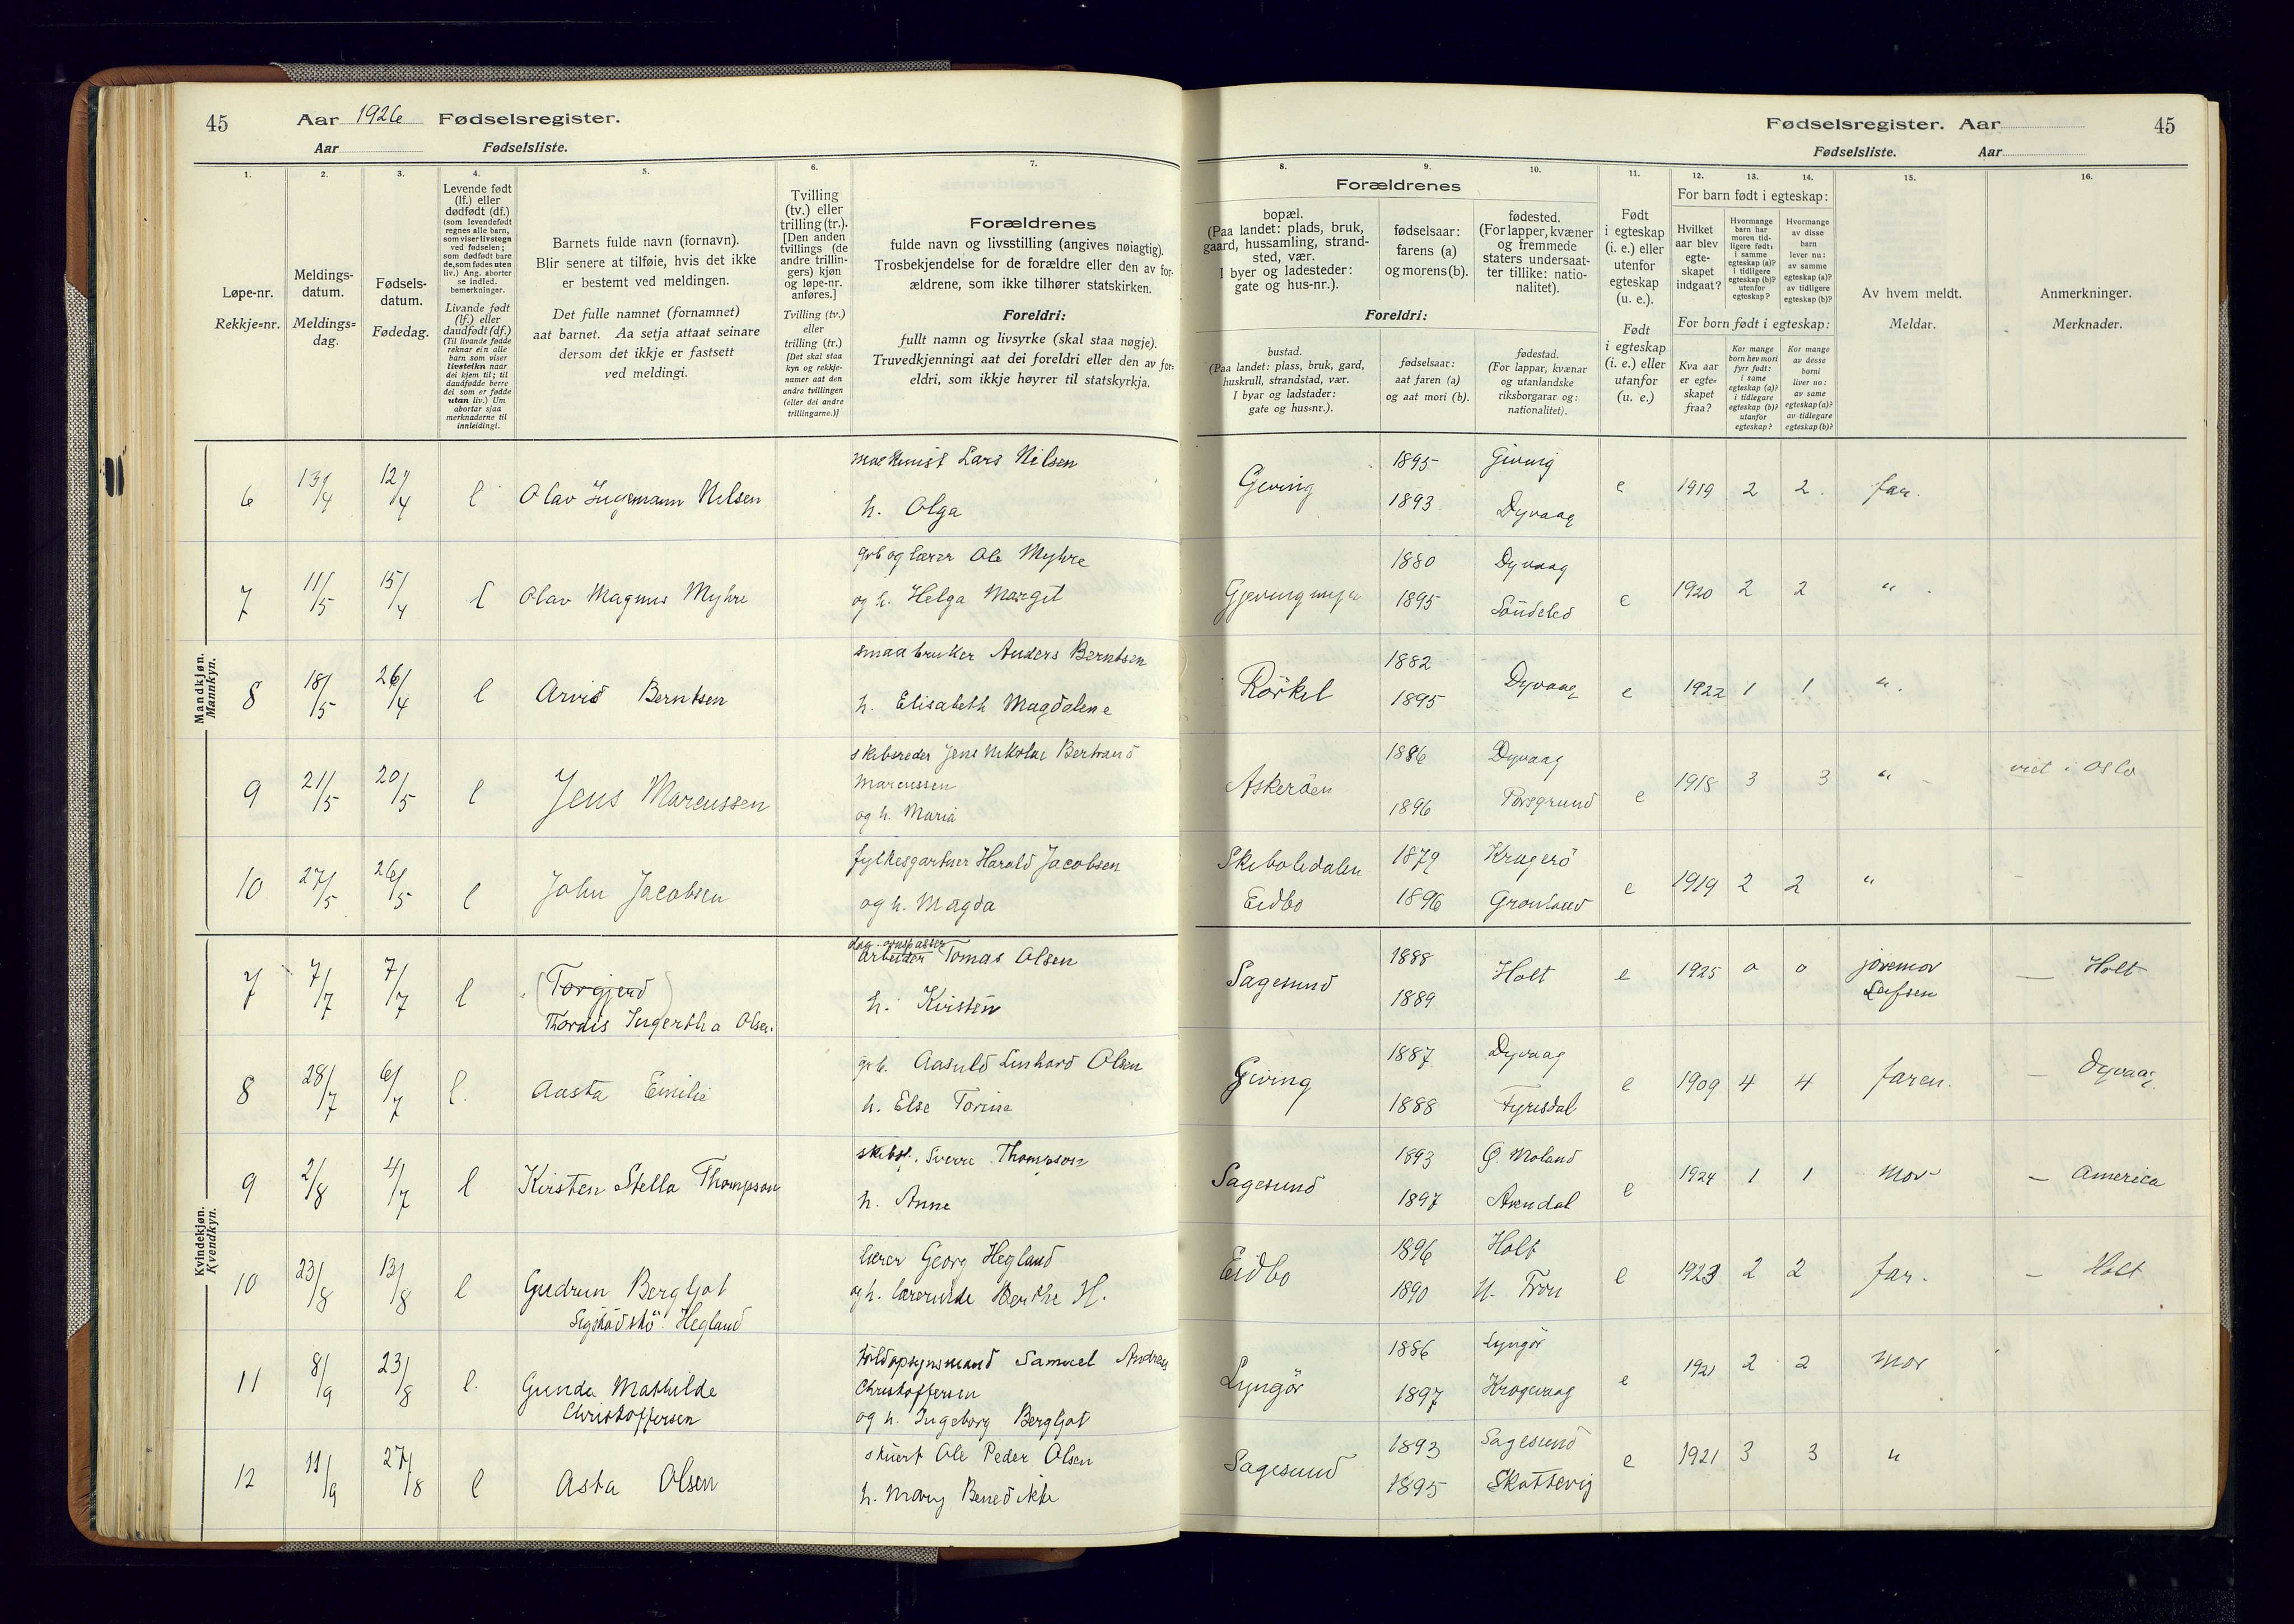 45 Aar 1926 Fødselsregister.
Aar Fødselsliste.
Fødselsregister. Aar 45
Fødselsliste. Aar
1. 2. 3. 4. 5. 6. 7.
Løpe-nr.
Rekkje=nr.
Meldings-
datum.
Meldings=
dag.
Fødsels-
datum.
Fødedag.
Levende født
(lf.) eller
dødfødt (df.)
(som levendefødt
regnes alle barn,
som viser livstegn
ved fødselen;
som dødfødt bare
de, som fødes uten
liv.) Ang. aborter
se indled.
bemerkninger.
Livande født
(lf.) eller
daudfødt (df.)
(Til livande fødde
reknar ein alle
barn som viser
livsteikn naar
dei kjem til; til
daudfødde berre
dei som er fødde
utan liv.) Um
abortar sjaa
merknaderne til
innleidingi.
Barnets fulde navn (fornavn).
Blir senere at tilføie, hvis det ikke
er bestemt ved meldingen.
Det fulle namnet (fornamnet)
aat barnet. Aa setja attaat seinare
dersom det ikkje er fastsett
ved meldingi.
Tvilling
(tv.) eller
trilling (tr.).
[Den anden
tvillings (de
andre trillin-
gers) kjøn
og løpe-nr.
anføres.]
Tvilling (tv.)
eller
trilling (tr.)
[Det skal staa
kyn og rekkje-
numer aat den
andre tvillingen
(eller dei andre
trillingarne.)]
Forældrenes
fulde navn og livsstilling (angives nøiagtig).
Trosbekjendelse for de forældre eller den av for-
ældrene, som ikke tilhører statskirken.
Foreldri:
fullt namn og livsyrke (skal staa nøgje).
Truvedkjenningi aat dei foreldri eller den av for=
eldri, som ikkje høyrer til statskyrkja.
8. 9. 10. 11. 12. 13. 14. 15. 16.
Forældrenes
bopæl.
(Paa landet: plads, bruk,
gaard, hussamling, strand-
sted, vær.
I byer og ladesteder:
gate og hus-nr.).
fødselsaar:
farens (a)
og morens (b).
fødested.
(For lapper, kvæner
og fremmede
staters undersaat-
ter tillike: natio-
nalitet).
Foreldri:
bustad.
(Paa landet: plass, bruk, gard,
huskrull, strandstad, vær.
I byar og ladstader:
gate og hus=nr.).
fødselsaar:
aat faren (a)
og aat mori (b).
fødestad.
(For lappar, kvænar
og utanlandske
riksborgarar og:
nationalitet).
Født
i egteskap
(i. e.) eller
utenfor
egteskap
(u. e.).
Født
i egteskap
(i. e.) eller
utanfor
(u. e.)
For barn født i egteskap:
Hvilket
aar blev
egte-
skapet
indgaat?
Hvormange
barn har
moren tid-
ligere født:
i samme
egteskap (a)?
i tidligere
egteskap (b)?
utenfor
egteskap?
Hvormange
av disse
barn
lever nu:
av samme
egteskap (a)?
av tidligere
egteskap (b)?
For born født i egteskap:
Kva aar
er egte=
skapet
fraa?
Kor mange
born hev mori
fyrr født:
i same
egteskap (a)?
i tidlegare
egteskap (b)?
utanfor
egteskap?
Kor mange
av desse
borni
liver no:
av same
egteskap (a)?
av tidlegare
egteskap (b)?
Av hvem meldt.
Meldar.
Anmerkninger.
Merknader.
Mandkjøn.
Mannkyn.
6 13/4 12/4 l Olav Ingemann Nilsen maskinist Lars Nilsen
h. Olga
Geving 1895 Giving
1893 Dyvaag
e 1919 2 2. far.
7 11/5 15/4 l Olav Magnus Myhre grb og lærer Ole Myhre
og h. Helga Margit
1880 Dyvaag
1895 Söndeled
e 1920 2 2 "
8 18/5 26/4 l Arvid Berntsen smaabruker Anders Berntsen
h. Elisabeth Magdalene
Rörkil 1882
1895 Dyvaag
e 1922 1 1 "
9 21/5 20/5 l Jens Marcussen skibsreder Jens Nikolai Bertrand
Marcussen
og h. Maria
Askeröen 1886 Dyvaag
1896 Porsgrund
e 1918 3 3 " viet i Oslo
10 27/5 26/5 l John Jacobsen fylkesgartner Harald Jacobsen
og h. Magda
Skiboledalen 1879 Kragerö
Eidbo 1896 Grönland
e 1919 2 2 "
Kvindekjøn.
Kvendkyn.
7 7/7 7/7 l (Torgjerd)
Thordis Ingertha Olsen.
arbeider Tomas Olsen
h. Kirsten
Sagesund 1888
1889 Holt
e 1925 0 0 jordmor — Holt
8 28/7 6/7 l. Aasta Emilie grb. Aasuld Linhard Olsen
h. Else Torine
Geving 1887 Dyvaag
1888 Fyrisdal
e 1909 4 4 faren. — Dyvaag.
9 2/8 4/7 l Kirsten Stella Thompson Sverre Thompson
h. Anne
Sagesund 1893 Ø. Moland
1897 Arendal
e 1924 1 1 Mor — America
10 23/8 13/8 l Gudrun Bergljot
Hegland
lærer Georg Hegland
og h. lærerinde Berthe H.
Eidbo 1896 Holt
1890 N. Fron
e 1923 2 2 far. — Holt
11 8/9 23/8 l. Gunda Mathilde
Christoffersen
toldopsynsmand Samuel Andreas
Christoffersen
og h. Ingeborg Bergljot
Lyngör 1886 Lyngör
1897 Krogevaag
e 1921 2 2 Mor
12 11/9 27/8 l Asta Olsen Ole Peder Olsen
h. Mary Benedikte
Sagesund 1893 Sagesund
1895 Skottevig
e 1921 3 3 "